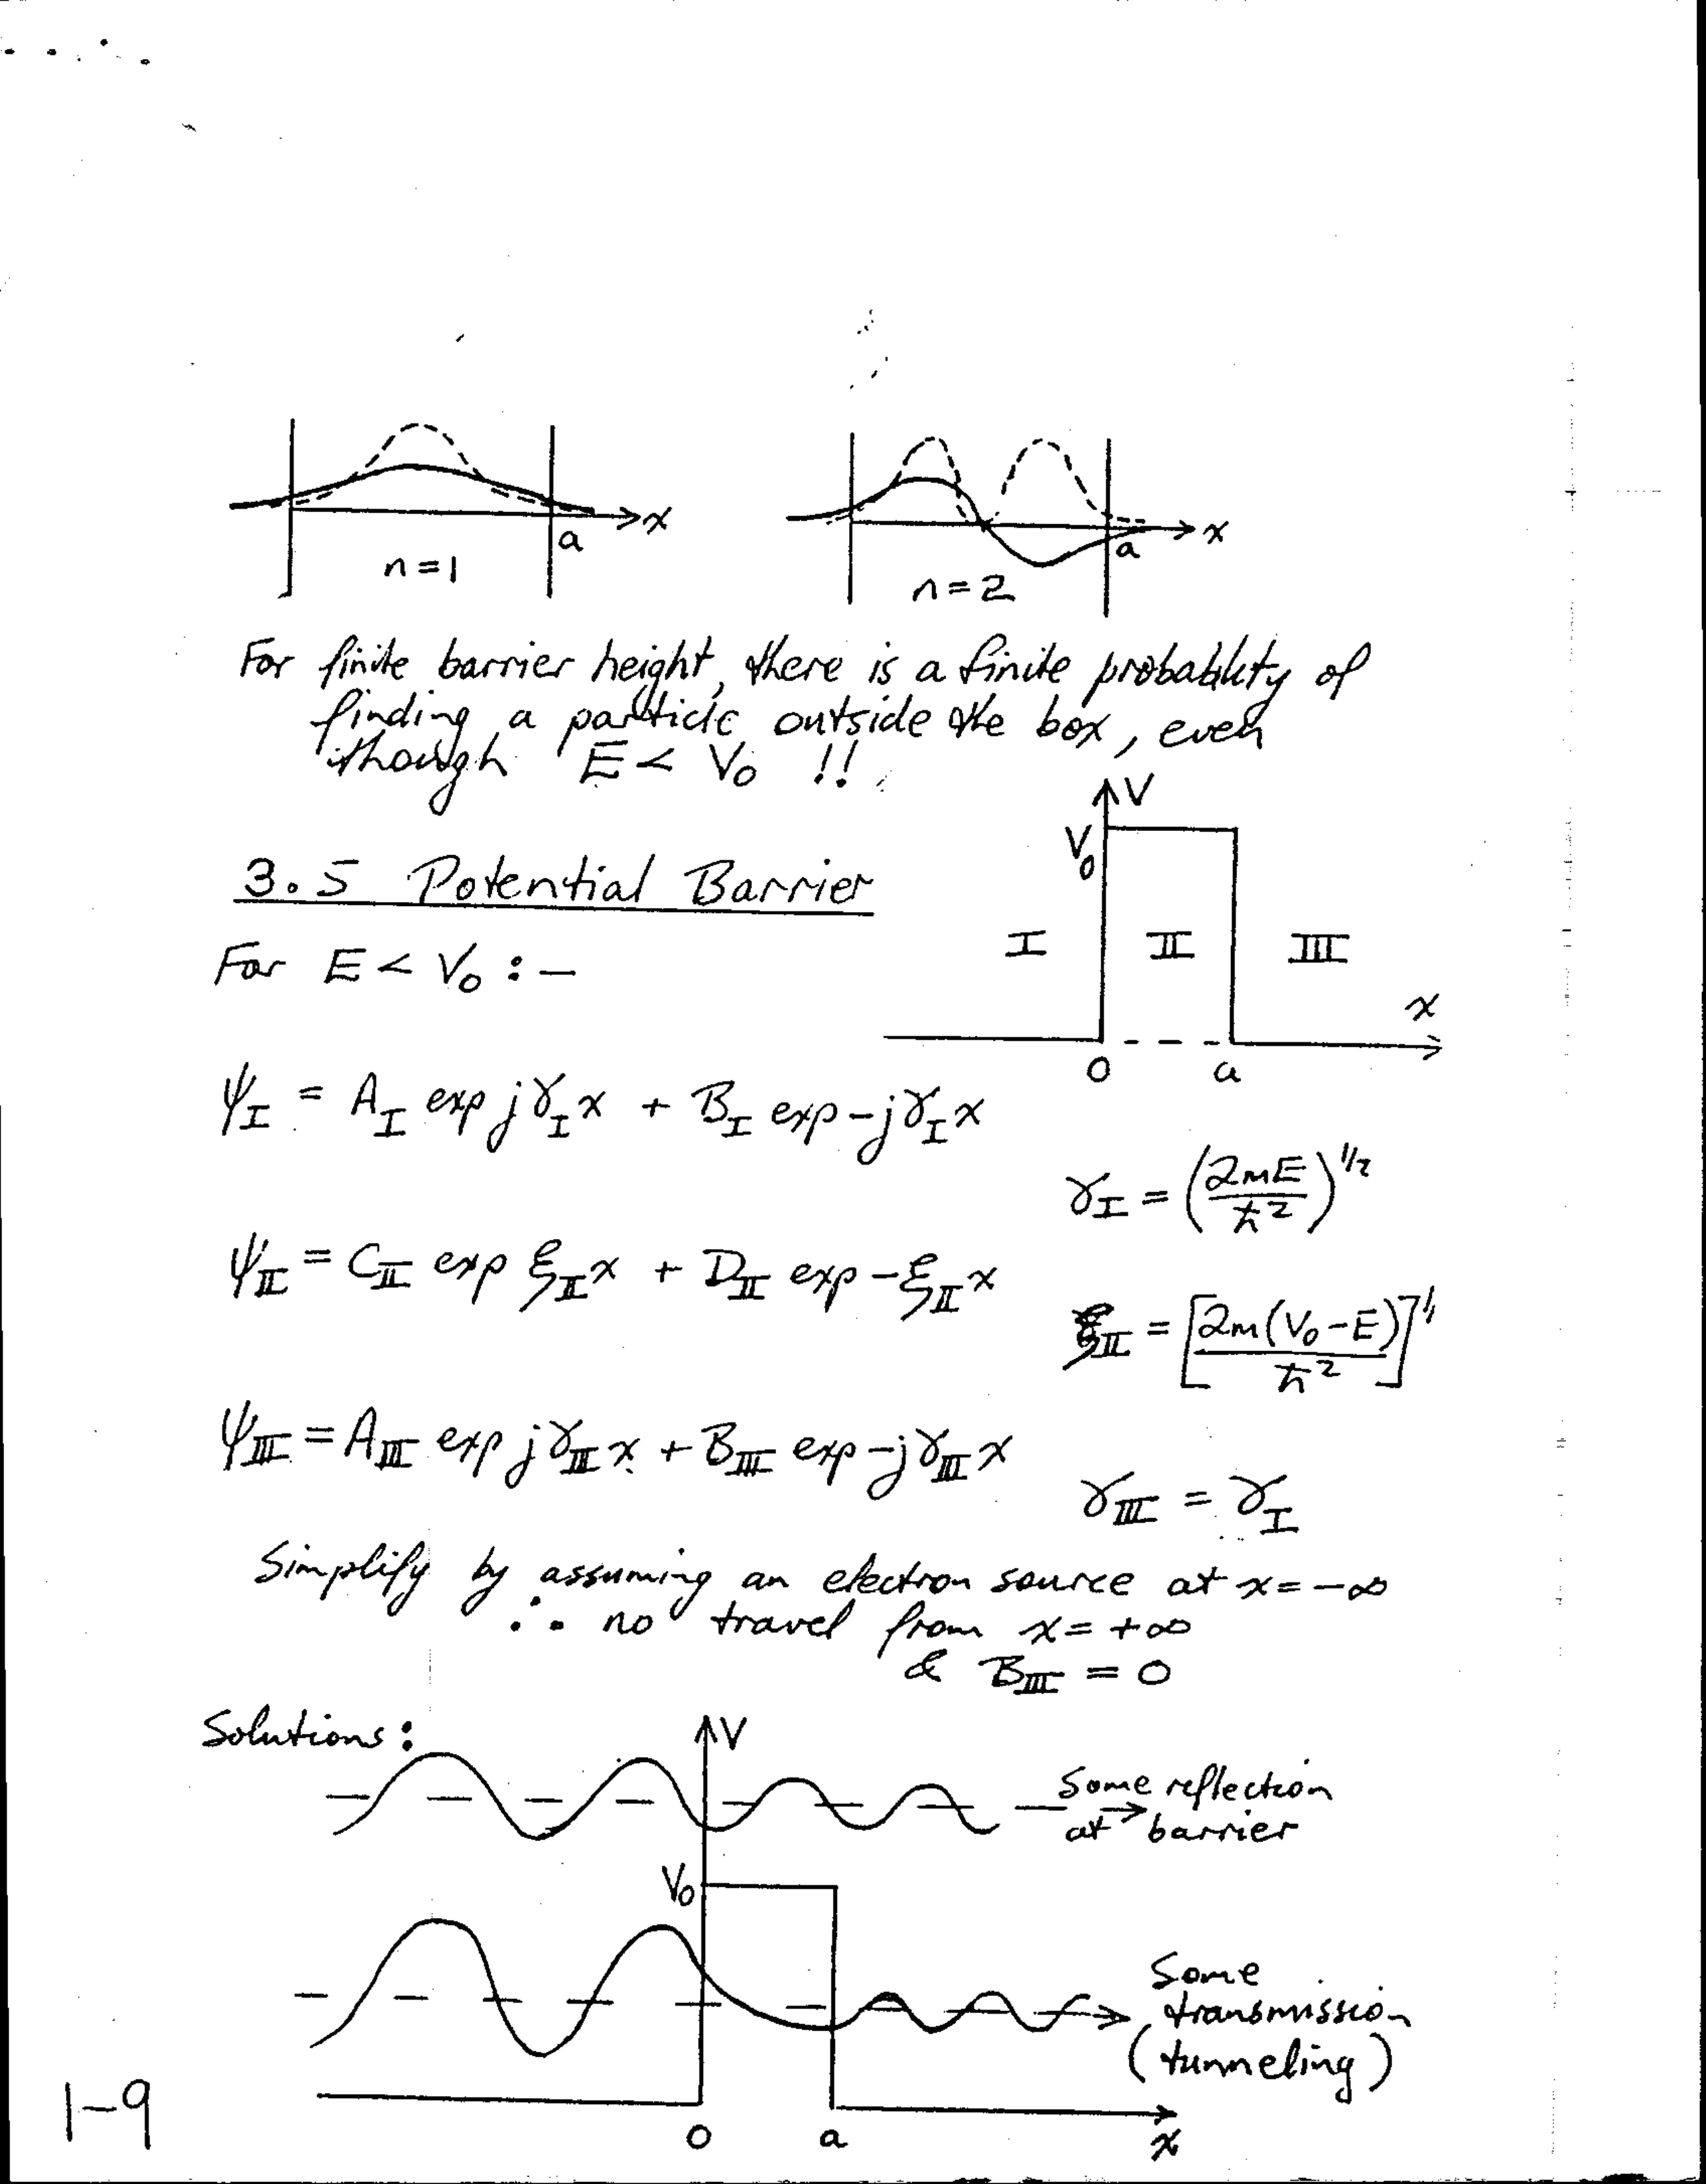 x
a
n=1
x
a
n=2
For finite barrier height, there is a finite probability of
finding a particle outside the box, even
though E < V₀ !!
V
V₀
3.5 Potential Barrier
I II III
For E < V₀ :-
x
0 a
ψ_I = A_I exp jγ_I x + B_I exp-jγ_I x
γ_I = (2mE/ħ²)^1/2
ψ_II = C_II exp ξ_II x + D_II exp-ξ_II x
ξ_II = [2m(V₀-E)/ħ²]^1/
ψ_III = A_III exp jγ_III x + B_III exp-jγ_III x
γ_III = γ_I
Simplify by assuming an electron source at x = -∞
∴ no travel from x = +∞
& B_III = 0
Solutions:
V
Some reflection
at barrier
V₀
Some
transmission
(tunneling)
1-9
0 a x